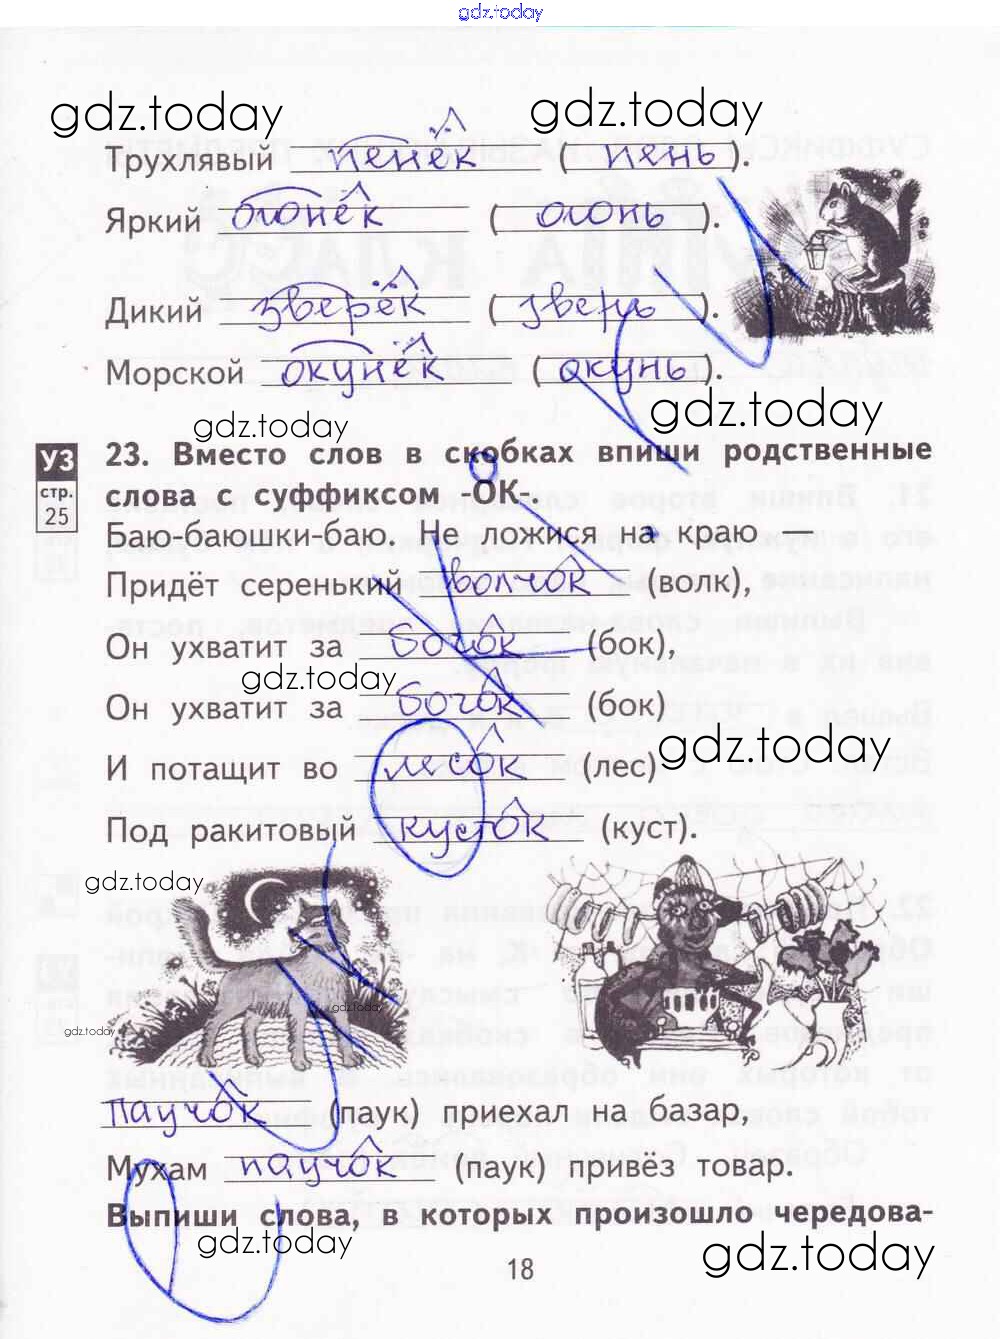 gdz.today
gdz.today gdz.today
Трухлявый пенёк (пень).
Яркий огонёк (огонь).
Дикий зверёк (зверь).
Морской окунёк (окунь).
gdz.today
gdz.today
УЗ
стр.
25
23. Вместо слов в скобках впиши родственные
слова с суффиксом -ОК-.
Баю-баюшки-баю. Не ложися на краю —
Придёт серенький волчок (волк),
Он ухватит за бочок (бок),
gdz.today
Он ухватит за бочок (бок)
gdz.today
И потащит во лесок (лес)
Под ракитовый кусток (куст).
gdz.today
gdz.today
gdz.today
паучок (паук) приехал на базар,
Мухам паучок (паук) привёз товар.
Выпиши слова, в которых произошло чередова-
gdz.today gdz.today
18